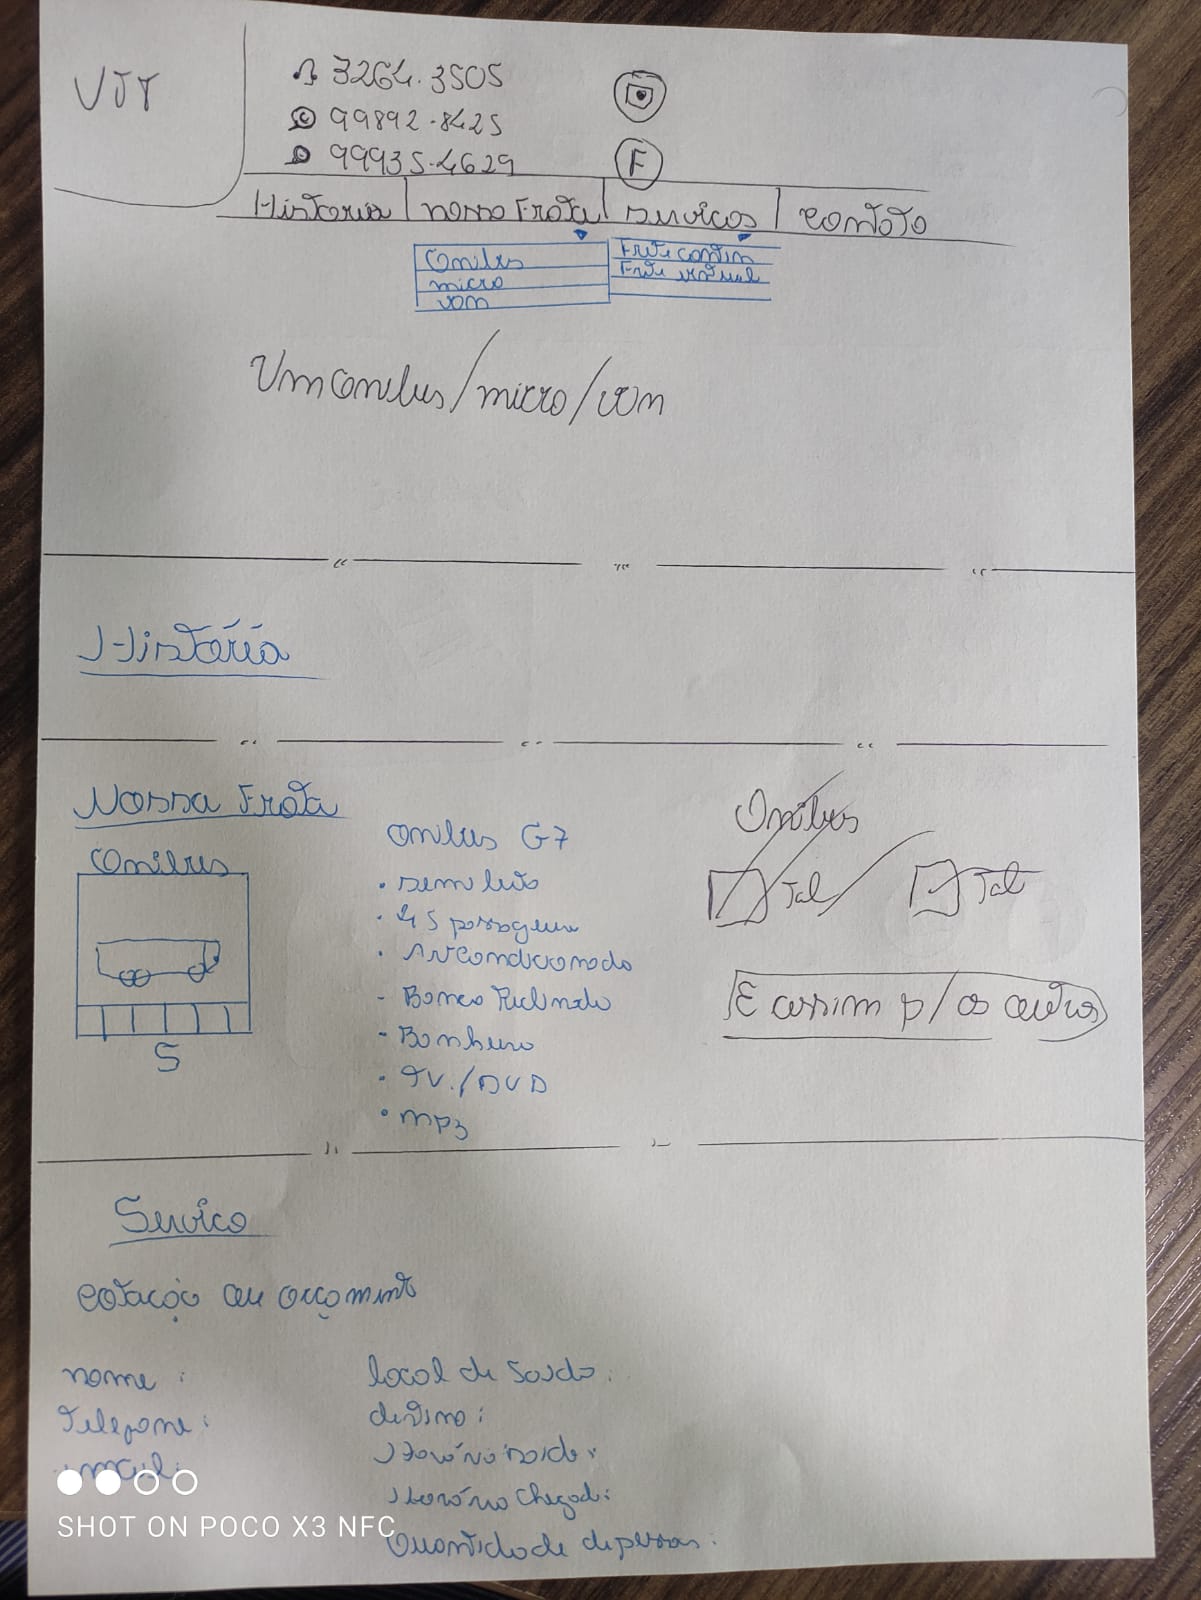 VJT
3264.3505
99892-8425
99935-4629
F
Historia | nossa Frota | serviços | contato
Onibus
micro
van
Frete contin
Frete eventual
Um onibus/micro/van
História
Nossa Frota
Onibus
5
onibus G7
• semi leito
• 45 passageiros
• Ar condicionado
- Banco Reclinado
- Banheiro
• TV./DVD
• mp3
Onibus
Tal
Tal
E assim p/ os outros
Serviço
cotação ou orçamento
nome :
Telefone :
email:
local de Saida :
destino :
Horário saida :
Horário chegad :
Quantidade de pessoas :
SHOT ON POCO X3 NFC